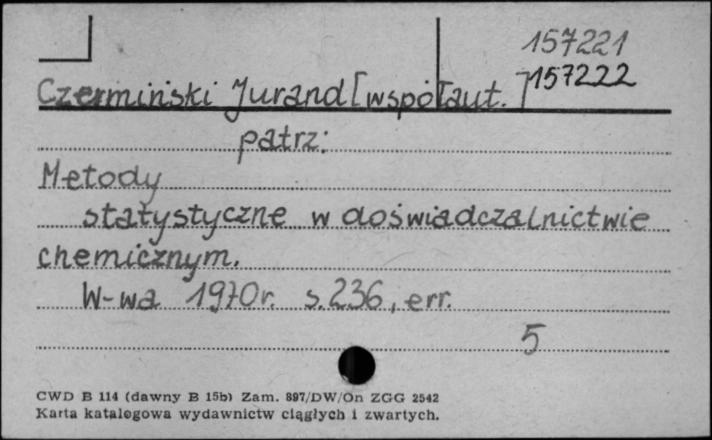 157221
Czermiński Jurand [współaut.] 157222
patrz:
Metody
statystyczne w doświadczalnictwie
chemicznym.
W-wa 1970r. s.236, err.
5
CWD B 114 (dawny B 15b) Zam. 897/DW/On ZGG 2542
Karta katalogowa wydawnictw ciągłych i zwartych.